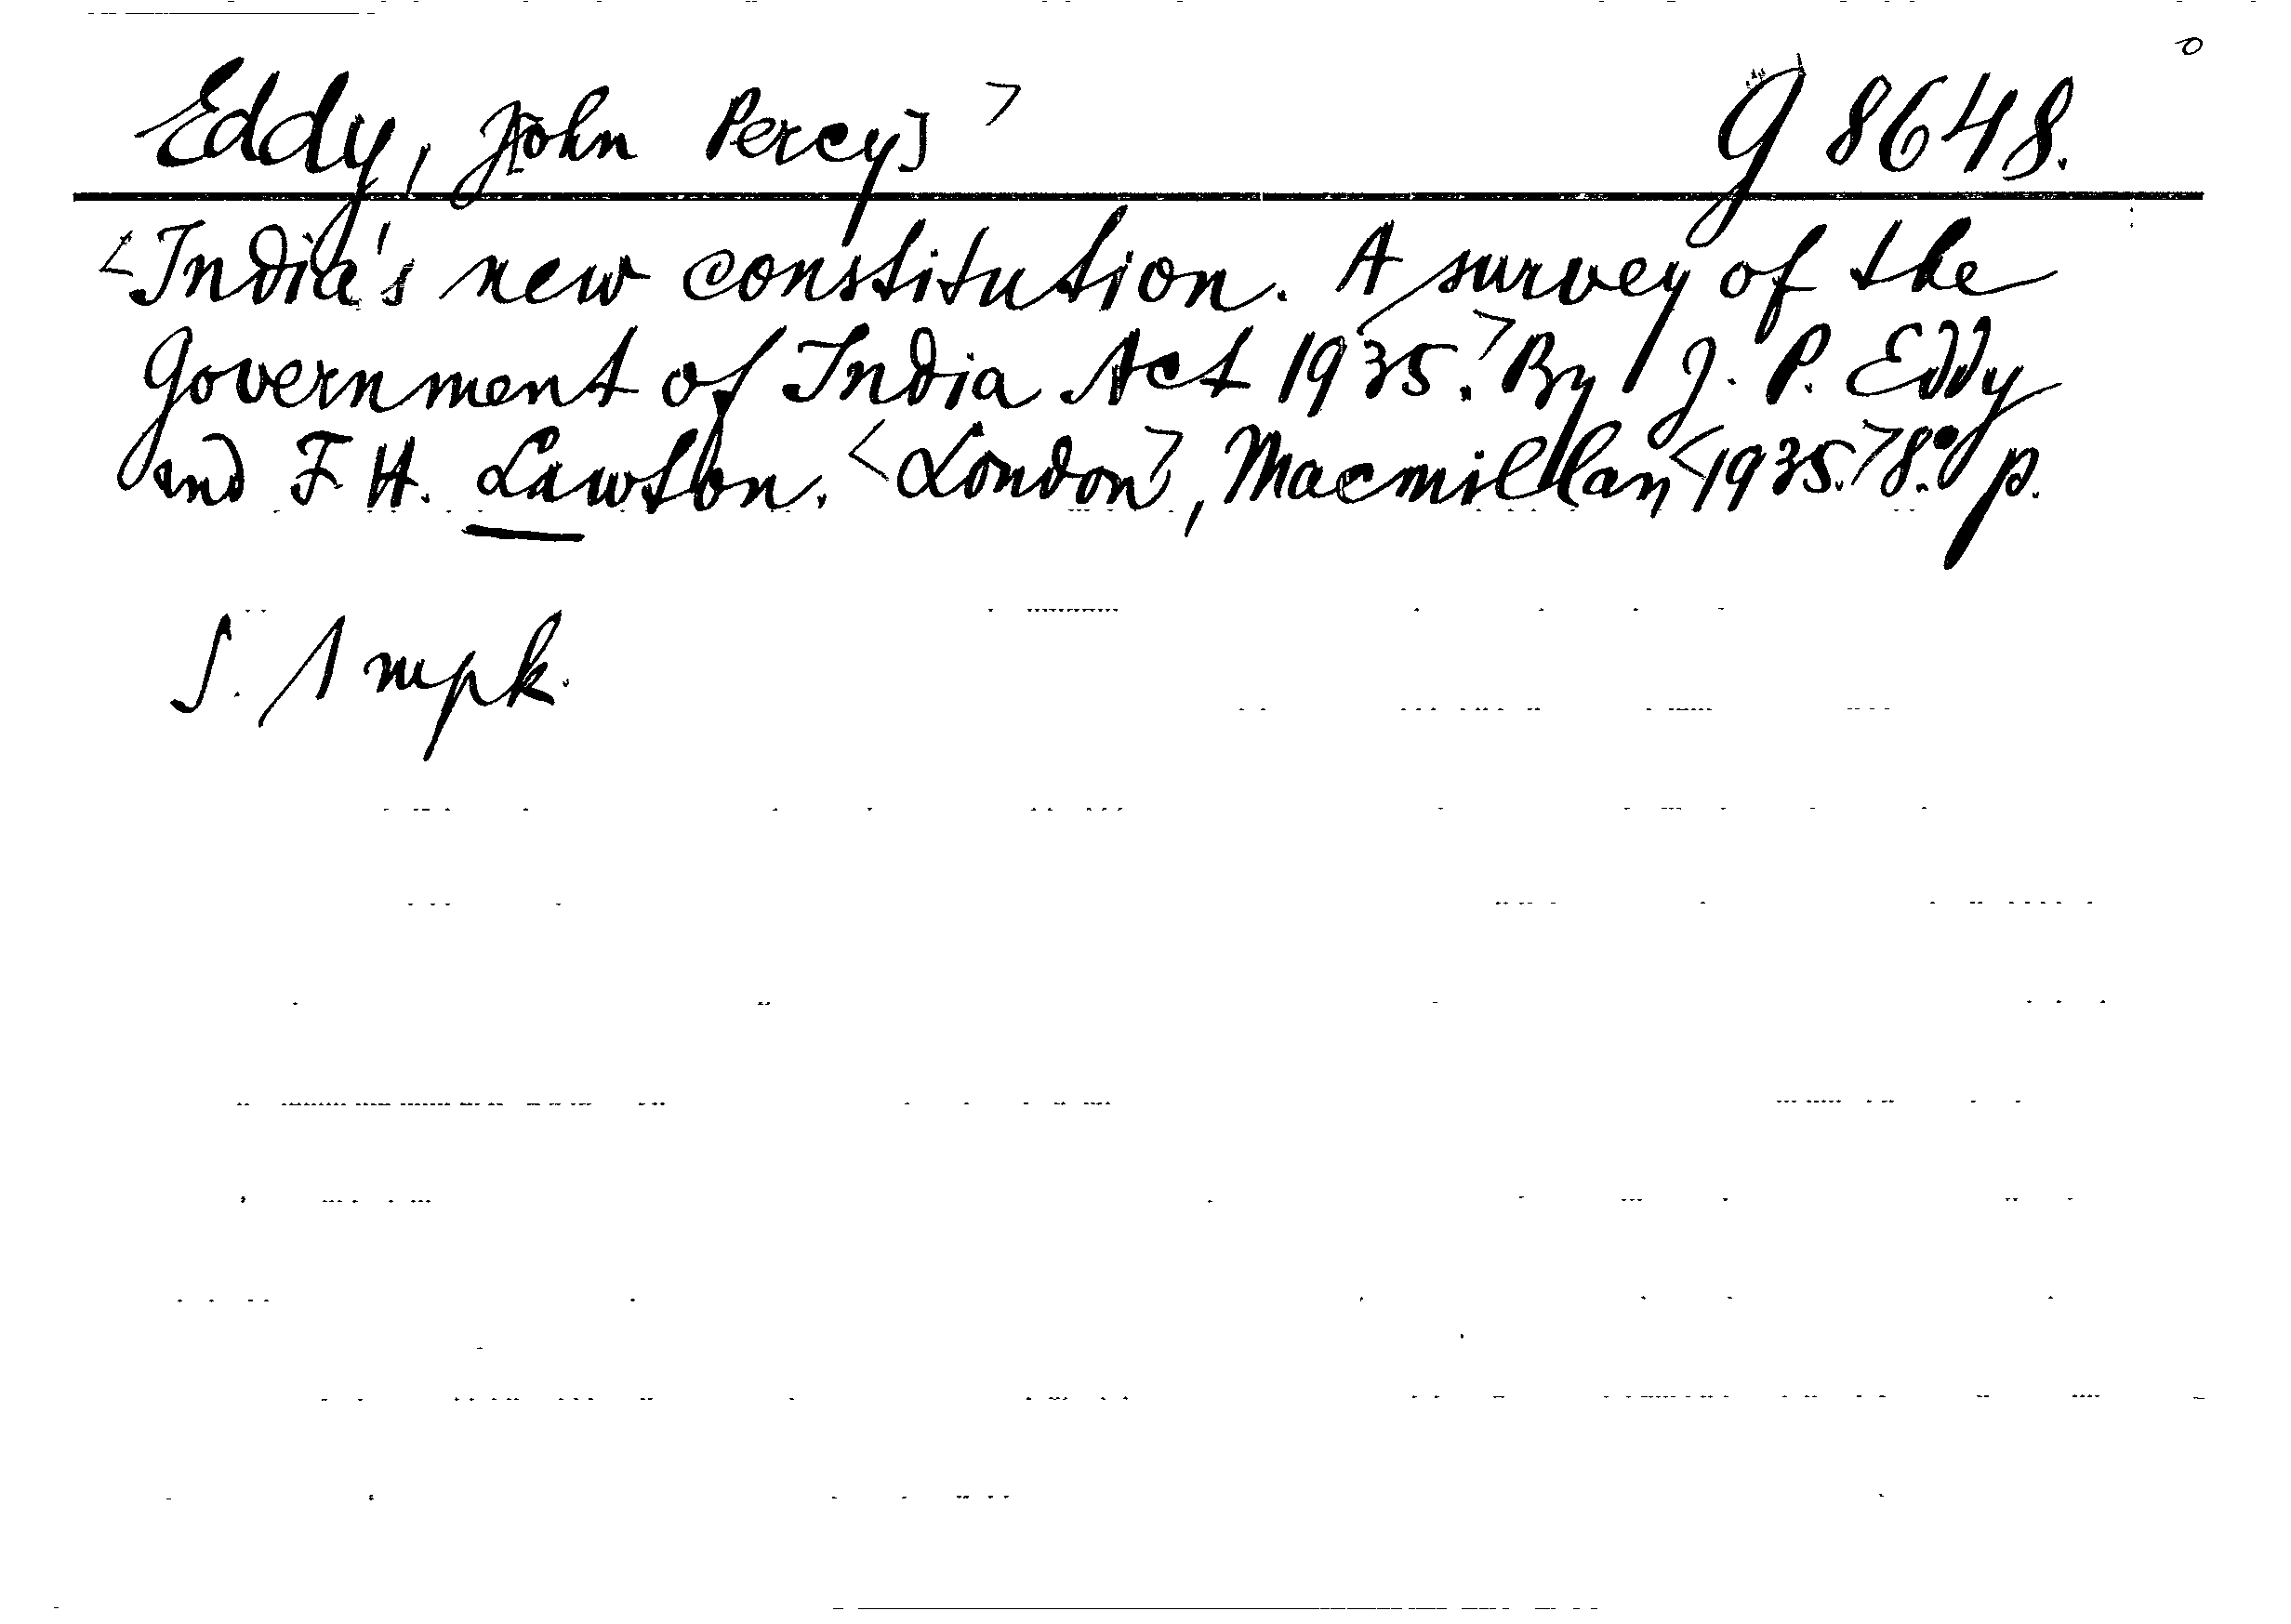 Eddy, J[ohn Percy] > G 8648.
<India's new constitution. A survey of the
Government of India Act 1935.> By J. P. Eddy
and F. H. Lawton. <London>, Macmillan <1935.> 8° p.
S. 1 mpk.